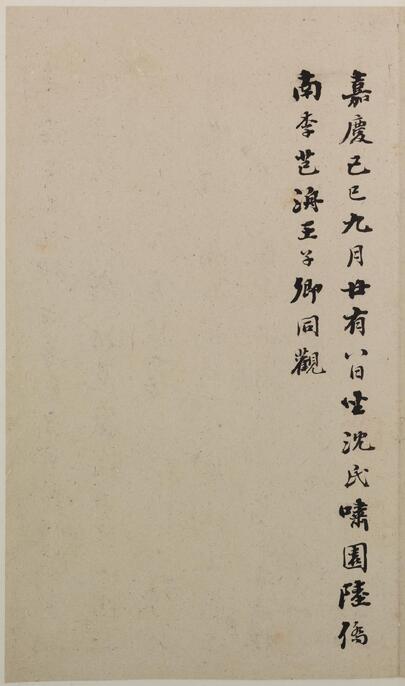 嘉慶己巳九月廿有八日坐沈氏嘯園陸僑
南李芑海王子卿同觀